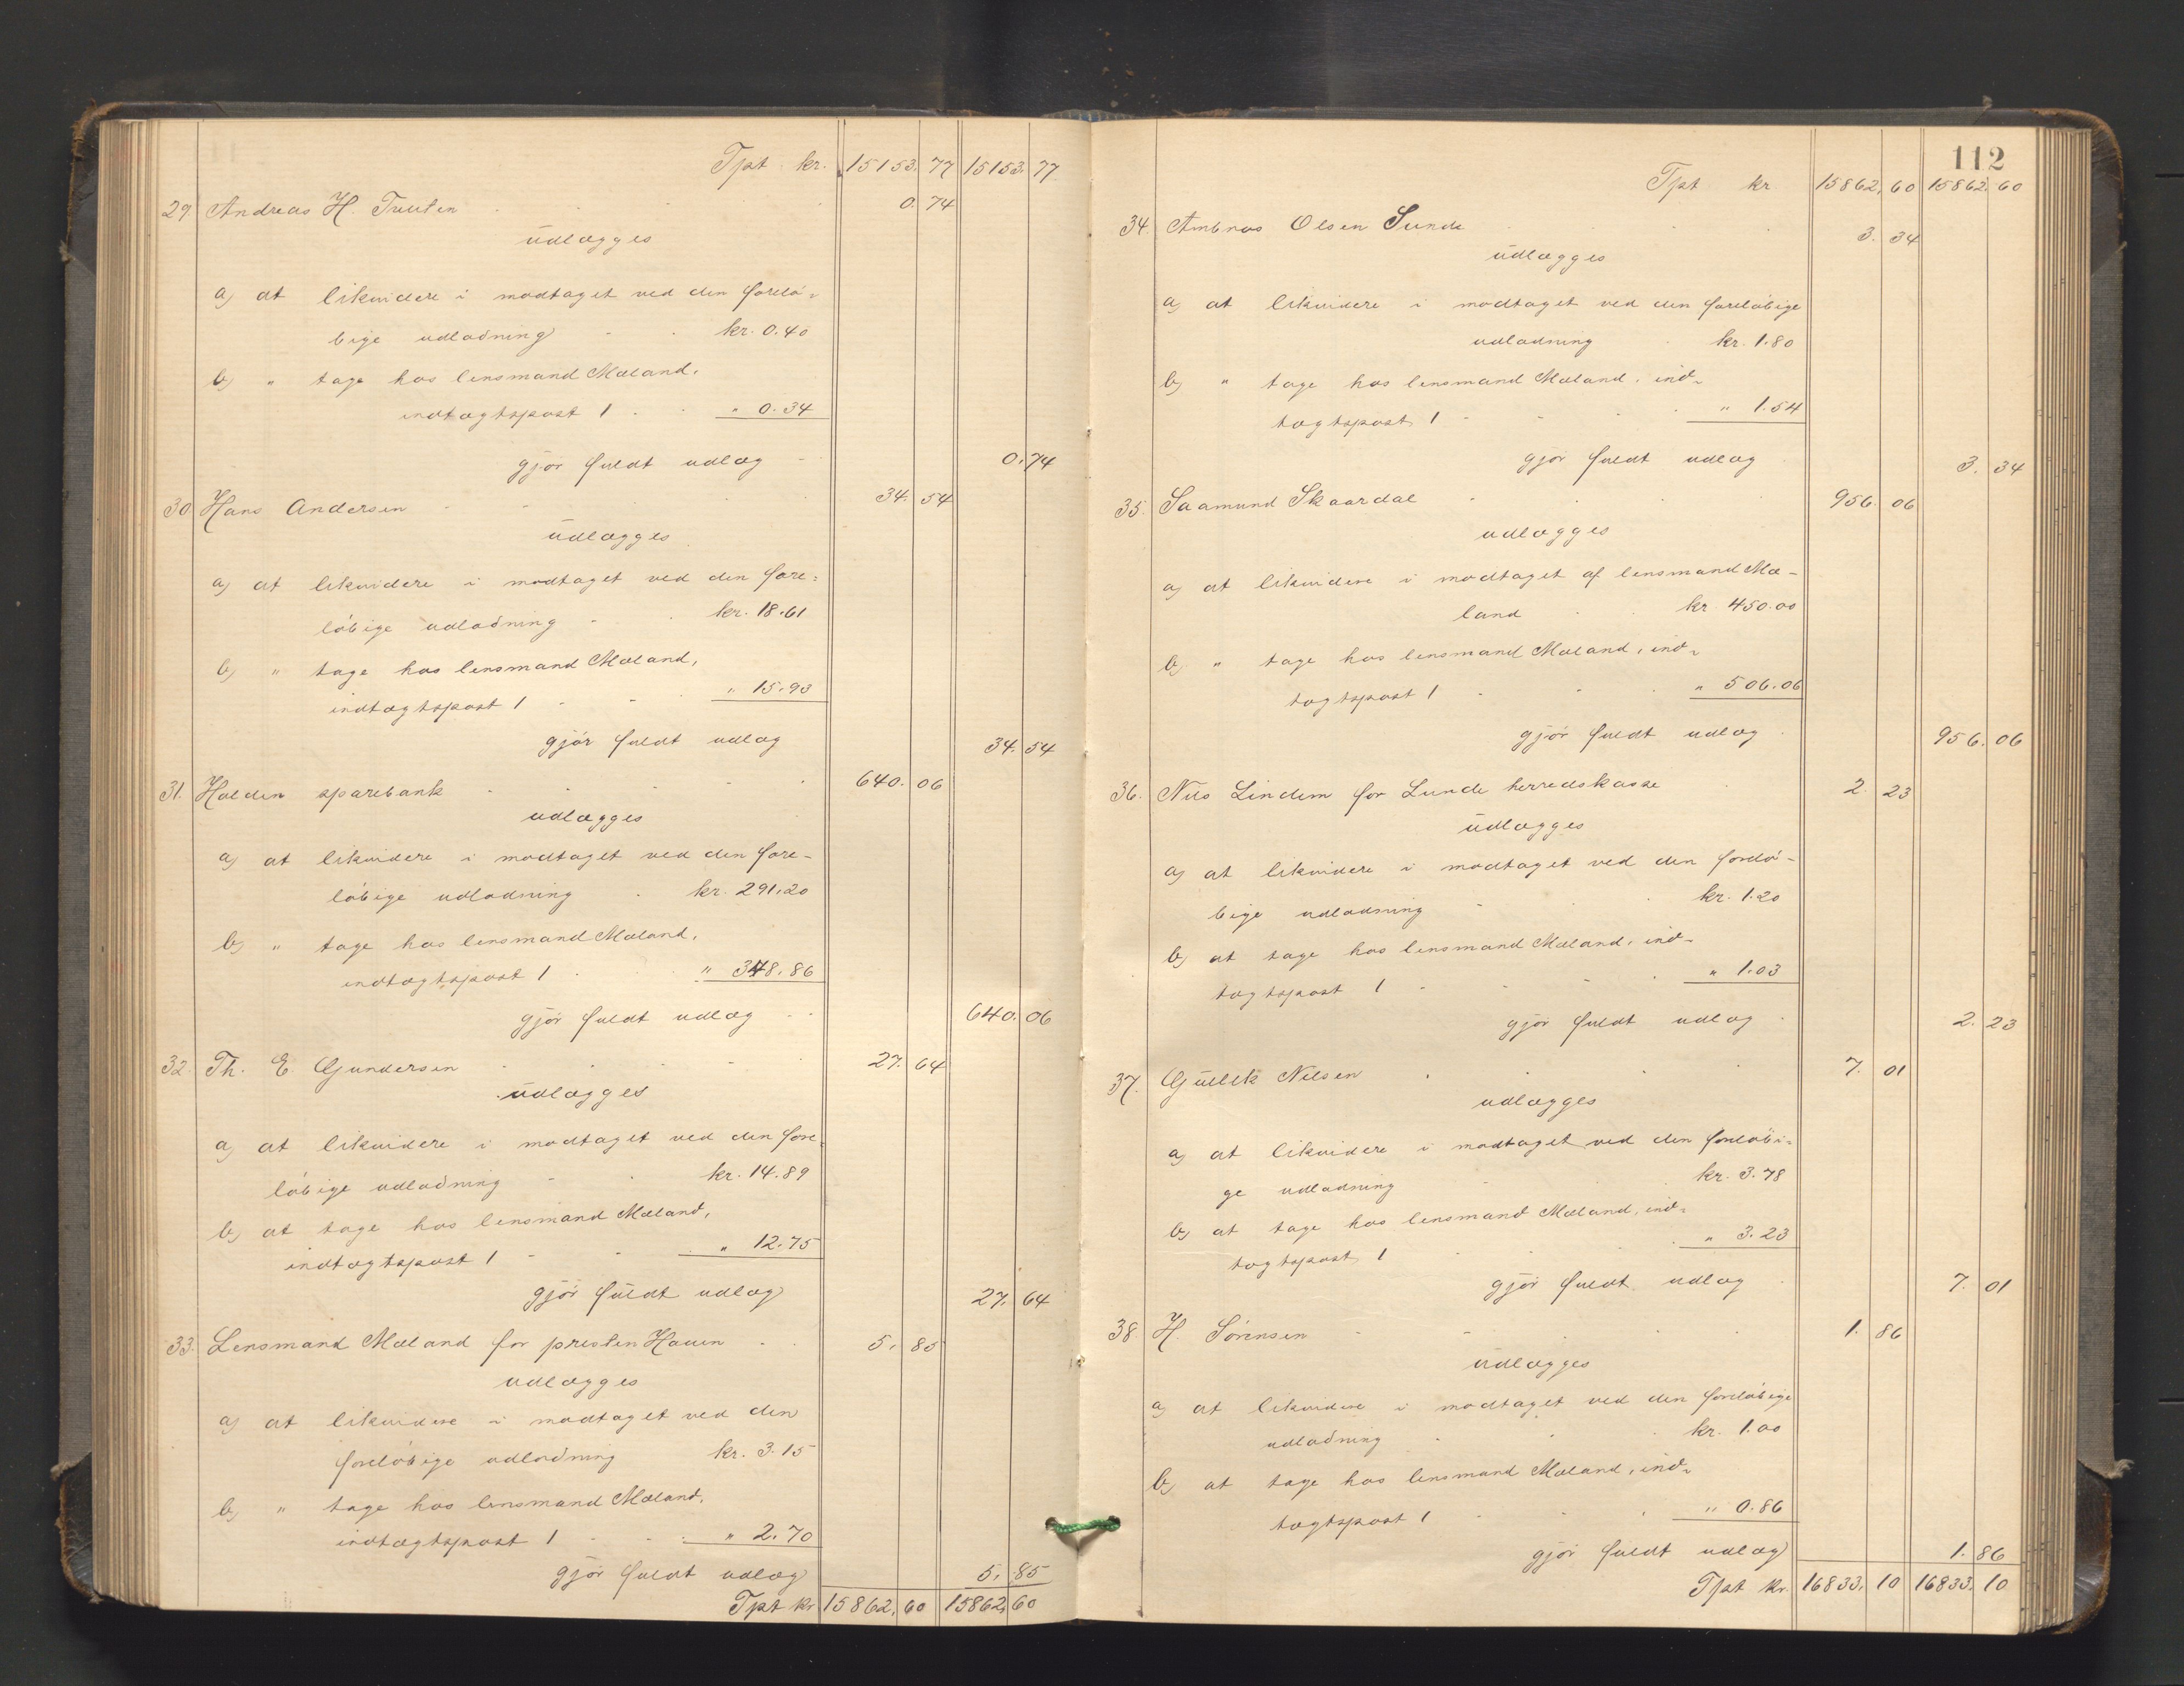 Tpt kr. 15153. 77 15153. 77
29 Andreas H. Tveiten 0. 74
udlægges
a) at likvidere i modtaget ved den forelø-
bige udlodning kr. 0.40
b) " tage hos lensmand Mæland,
indtægtspost 1 " 0.34
gjør fuldt udlæg 0. 74
30 Hans Andersen 34. 54
udlægges
a) at likvidere i modtaget ved den fore=
løbige udlodning kr. 18.61
b) " tage hos lensmand Mæland,
indtægtspost 1 " 15.93
gjør fuldt udlæg 34. 54
31. Holden sparebank 640. 06
udlægges
a) at likvidere i modtaget ved den fore-
løbige udlodning kr. 291.20
b) " tage hos lensmand Mæland,
indtægtspost 1 " 348.86
gjør fuldt udlæg 640. 06
32. Th. E. Gundersen 27. 64
udlægges
a) at likvidere i modtaget ved den fore-
løbige udlodning kr. 14.89
b) at tage hos lensmand Mæland,
indtægtspost 1 " 12.75
gjør fuldt udlæg 27. 64
33. Lensmand Mæland for presten Hauen 5. 85
udlægges
a) at likvidere i modtaget ved den
foreløbige udlodning kr. 3.15
b) " tage hos lensmand Mæland,
indtægtspost 1 " 2.70
gjør fuldt udlæg 5. 85
Tpt kr 15862. 60 15862. 60
112
Tpt kr 15862. 60 15862. 60
34. Ambros Olsen Sunde 3. 34
udlægges
a) at likvidere i modtaget ved den foreløbige
udlodning kr. 1.80
b) " tage hos lensmand Mæland, ind-
tægtspost 1 " 1.54
gjør fuldt udlæg 3. 34
35. Saamund Skaardal 956. 06
udlægges
a) at likvidere i modtaget af lensmand Mæ-
land kr 450.00
b) " tage hos lensmand Mæland, ind-
tægtspost 1 " 506.06
gjør fuldt udlæg 956. 06
36. Nils Lindem for Lunde herredskasse 2. 23
udlægges
a) at likvidere i modtaget ved den forelø-
bige udlodning kr. 1.20
b) at tage hos lensmand Mæland, ind-
tægtspost 1 " 1.03
gjør fuldt udlæg 2. 23
37. Gullik Nilsen 7. 01
udlægges
a) at likvidere i modtaget ved den foreløbi-
ge udlodning kr. 3.78
b) at tage hos lensmand Mæland, ind-
tægtspost 1 " 3.23
gjør fuldt udlæg 7. 01
38. H. Sørensen 1. 86
udlægges
a) at likvidere i modtaget ved den foreløbige
udlodning kr. 1.00
b) at tage hos lensmand Mæland, ind-
tægtspost 1 " 0.86
gjør fuldt udlæg 1. 86
Tpt kr. 16833. 10 16833. 10